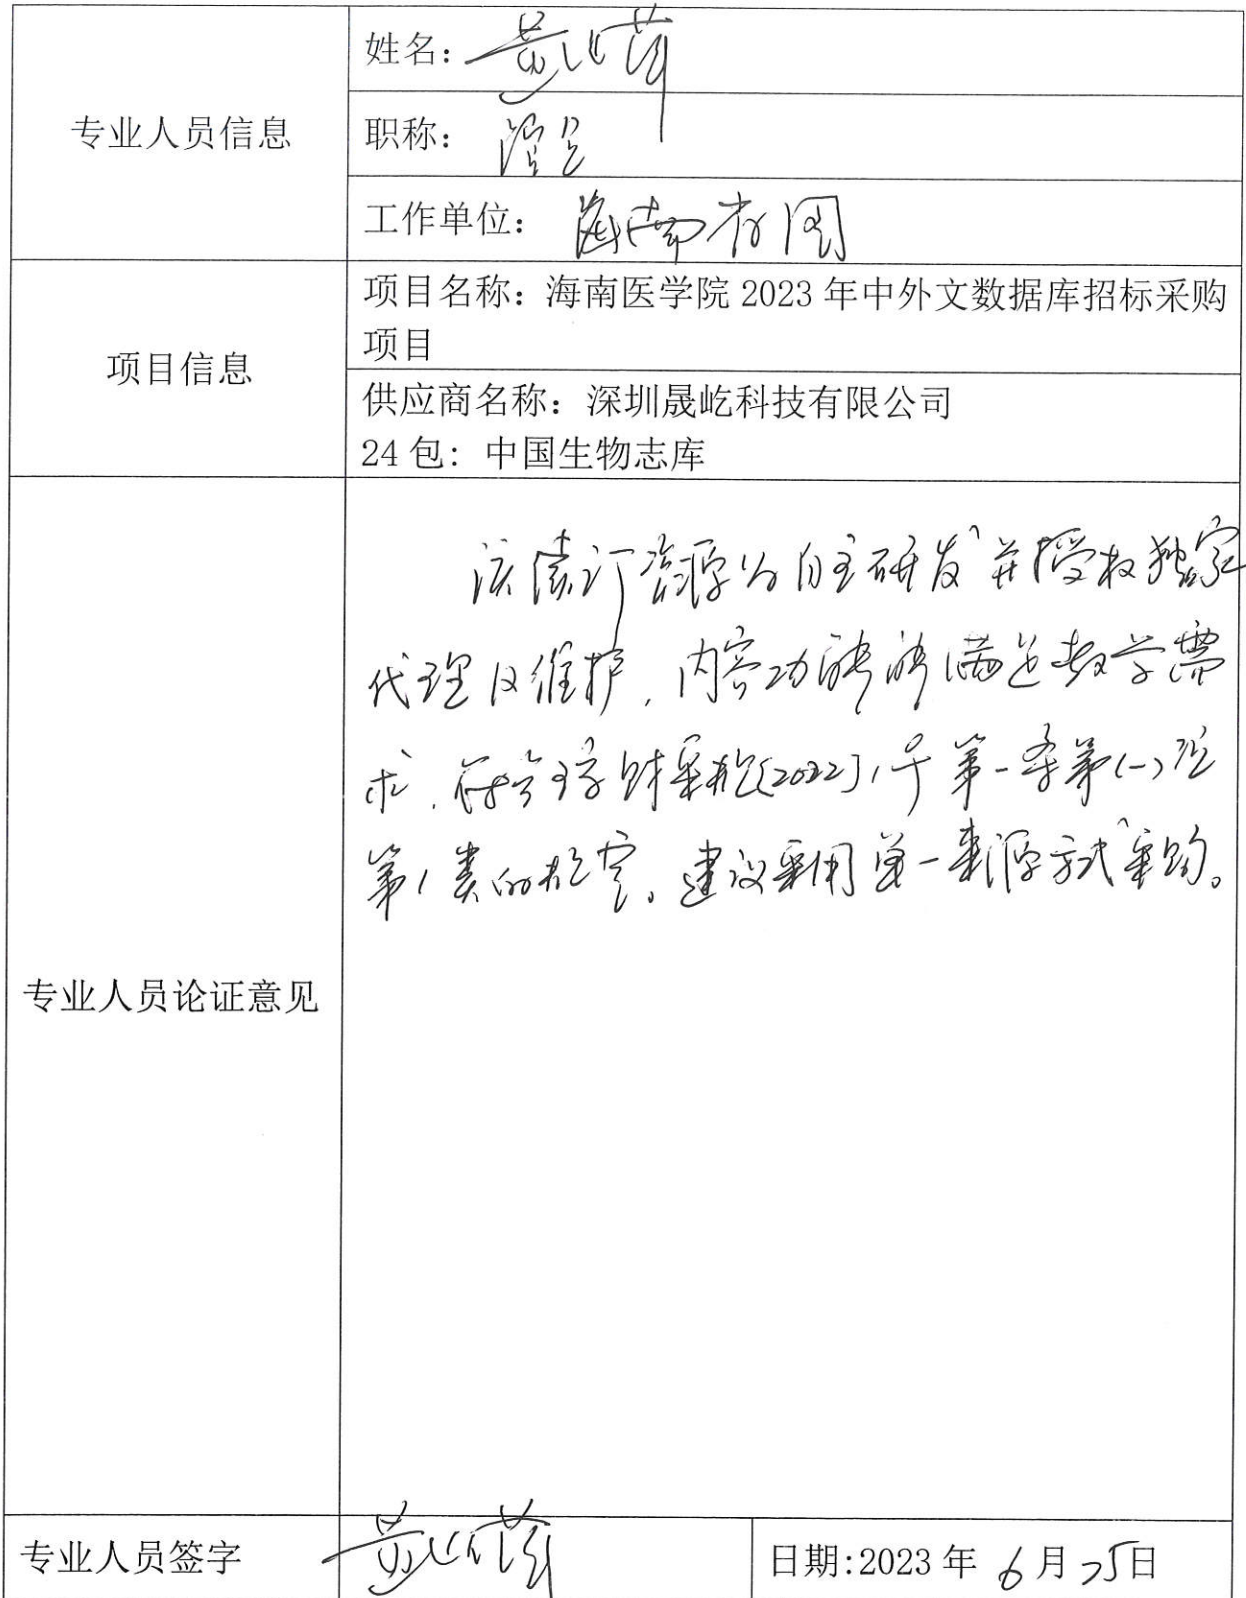 专业人员信息
姓名：
职称：
工作单位：海南省图
项目信息
项目名称：海南医学院 2023 年中外文数据库招标采购
项目
供应商名称：深圳晟屹科技有限公司
24 包：中国生物志库
专业人员论证意见
该续订资源为自主研发并授权独家
代理及维护，内容功能能满足教学需
求，符合琼财采规[2022]1号第一条第(一)项
第1类的规定。建议采用单一来源方式采购。
专业人员签字
日期:2023 年 6 月 25 日